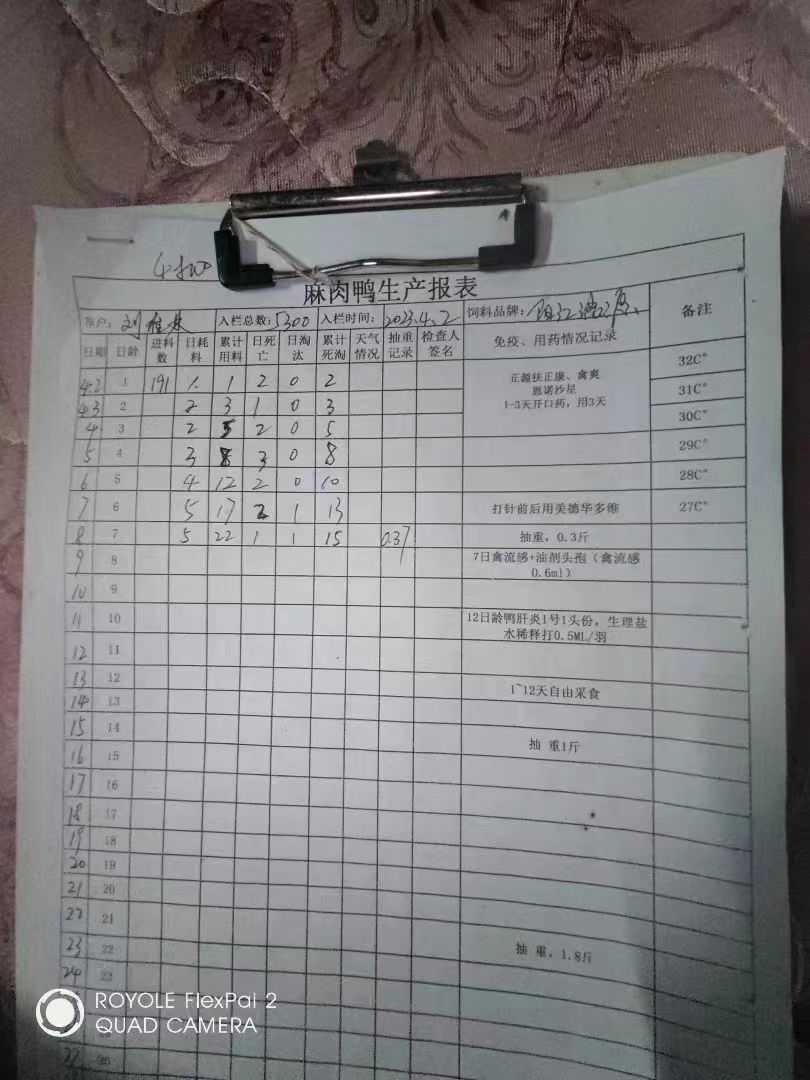 麻肉鸭生产报表
客户：刘 入栏总数：5300 入栏时间：2023.4.2 饲料品牌： 备注
日期 日龄 进料数 日耗料 累计用料 日死亡 日淘汰 累计死淘 天气情况 抽重记录 检查人签名 免疫、用药情况记录
4.2 1 191 1 1 2 0 2 正源扶正康、禽爽 32C°
恩诺沙星
4.3 2 2 3 1 0 3 1-3天开口药，用3天 31C°
4 3 2 5 2 0 5 30C°
5 4 3 8 3 0 8 29C°
6 5 4 12 2 0 10 28C°
7 6 5 17 2 1 13 打针前后用美德华多维 27C°
8 7 5 22 1 1 15 0.37 抽重，0.3斤
9 8 7日禽流感+油剂头孢（禽流感0.6ml）
10 9
11 10 12日龄鸭肝炎1号1头份，生理盐水稀释打0.5ML/羽
12 11
13 12 1~12天自由采食
14 13
15 14 抽 重1斤
16 15
17 16
18 17
19 18
20 19
21 20
22 21
23 22 抽 重，1.8斤
24 23
ROYOLE FlexPai 2
QUAD CAMERA